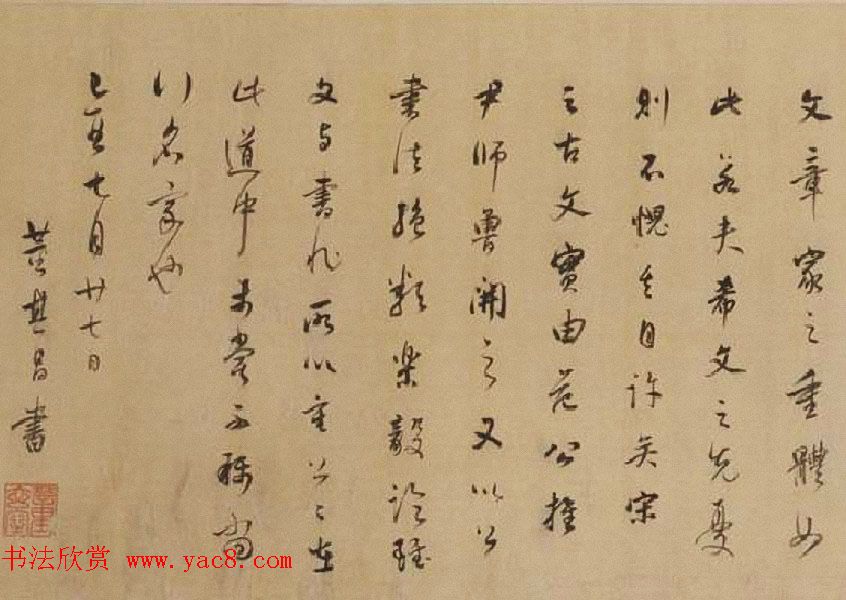 文章家之重體如
此若夫希文之先憂
則不愧其自許矣宋
之古文實由范公推
尹師魯開之又以公
書法絕類樂毅論雖
文与書非所以重公〻在
此道中未嘗不稱當
行名家也
己亥七月廿七日
董其昌書
书法欣赏 www.yac8.com